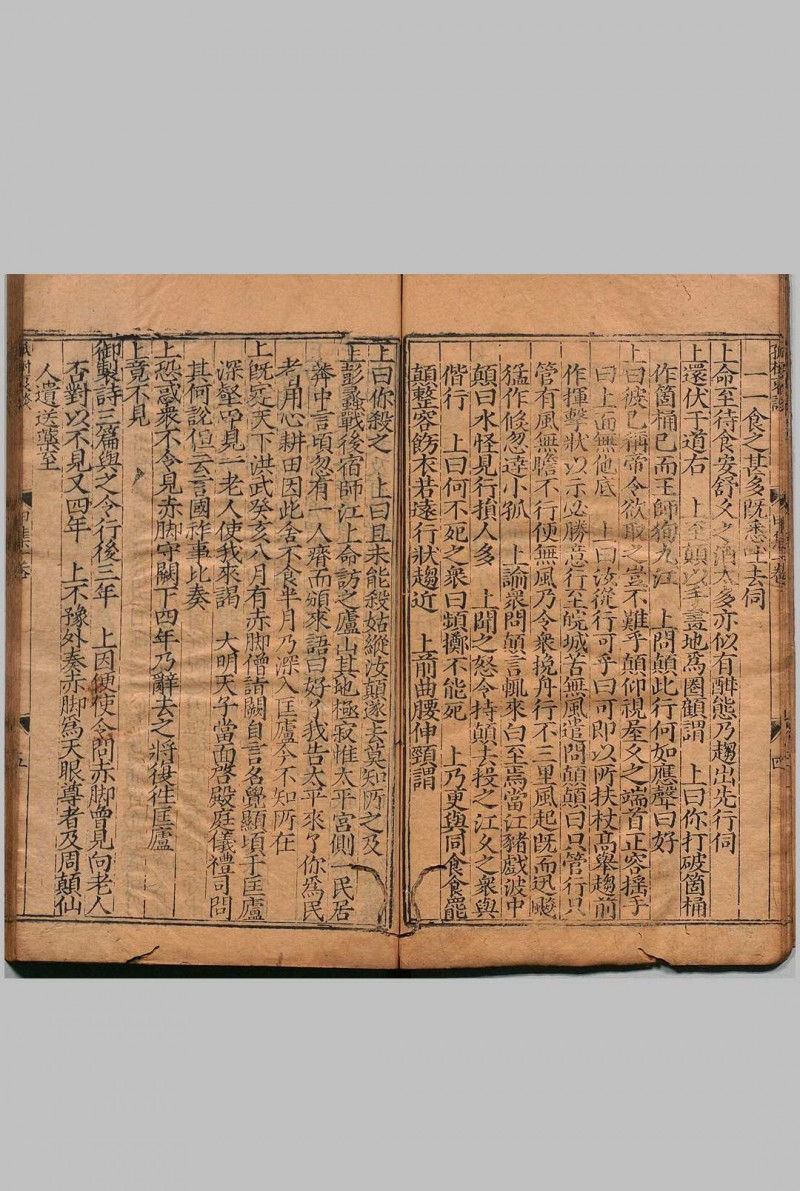 一一食之甚多既悉吐去伺
上命至待食安舒久之酒太多亦似有酣態乃趨出先行伺
上還伏于道右　上至顛以手畫地爲圈顧謂　上曰你打破箇桶
作箇桶已而王師狥九江　上問顛此行何如應聲曰好
上曰彼已稱帝今欲取之豈不難乎顛仰視屋久之端首正容搖手
曰上面無他底　上曰汝從行可乎曰可即以所扶杖高舉趨前
作揮擊狀以示必勝意行至皖城苦無風遣問顛顛曰只管行只
管有風無膽不行便無風乃令衆挽舟行不三里風起既而迅飈
猛作倏忽達小孤　上諭衆問顛言輒來白至馬當江豬戲波中
顛曰水怪見行損人多　上聞之怒令持顛去投之江久之衆與
偕行　上曰何不死之衆曰頻擲不能死　上乃更與同食食罷
顛整容飭衣若遠行狀趨近　上前曲腰伸頸謂
上曰你殺之　上曰且未能殺姑縱汝顛遂去莫知所之及
王彭蠡戰後宿師江上命訪之廬山其地極寂惟太平宮側一民居
莽中言頃忽有一人瘠而頒來語曰好了我告太平來了你爲民
者用心耕田因此舍不食半月乃深入匡廬今不知所在
上既定天下洪武癸亥八月有赤脚僧詣闕自言名覺顯頃于匡廬
深壑中見一老人使我來謁　大明天子當面啓殿庭儀禮司問
其何說但云言國祚事比奏
上恐惑衆不令見赤脚守闕下四年乃辭去之將復往匡廬
上竟不見
御製詩二篇與之令行後三年　上因便使令問赤脚曾見向老人
否對以不見又四年　上不豫外奏赤脚爲天眼尊者及周顛仙
人遣送藥至
四
五